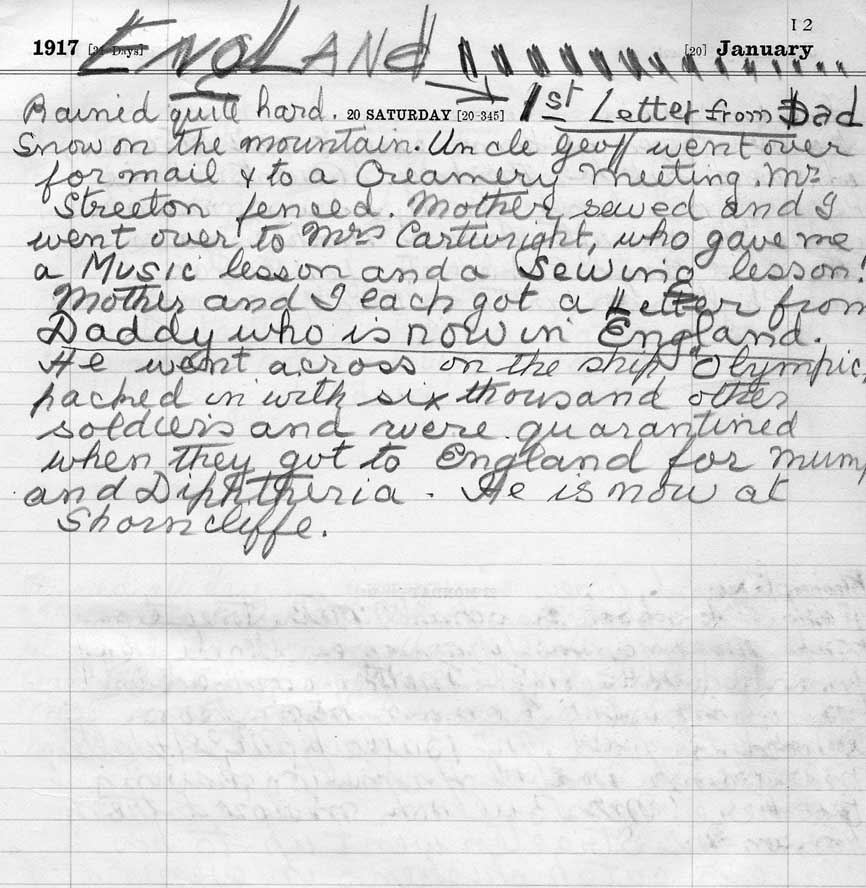 12
1917 [31 Days] ENGLAND [20] January
Rained quite hard. 20 SATURDAY [20-345] 1st Letter from Dad
Snow on the mountain. Uncle Geoff went over
for mail & to a Creamery Meeting. Mr
Streeton fenced. Mother sewed and I
went over to Mrs Cartwright, who gave me
a Music lesson and a Sewing lesson!
Mother and I each got a Letter from
Daddy who is now in England.
He went across on the ship "Olympic,
packed in with six thousand other
soldiers and were quarantined
when they got to England for mump
and Diphtheria. He is now at
Shorncliffe.